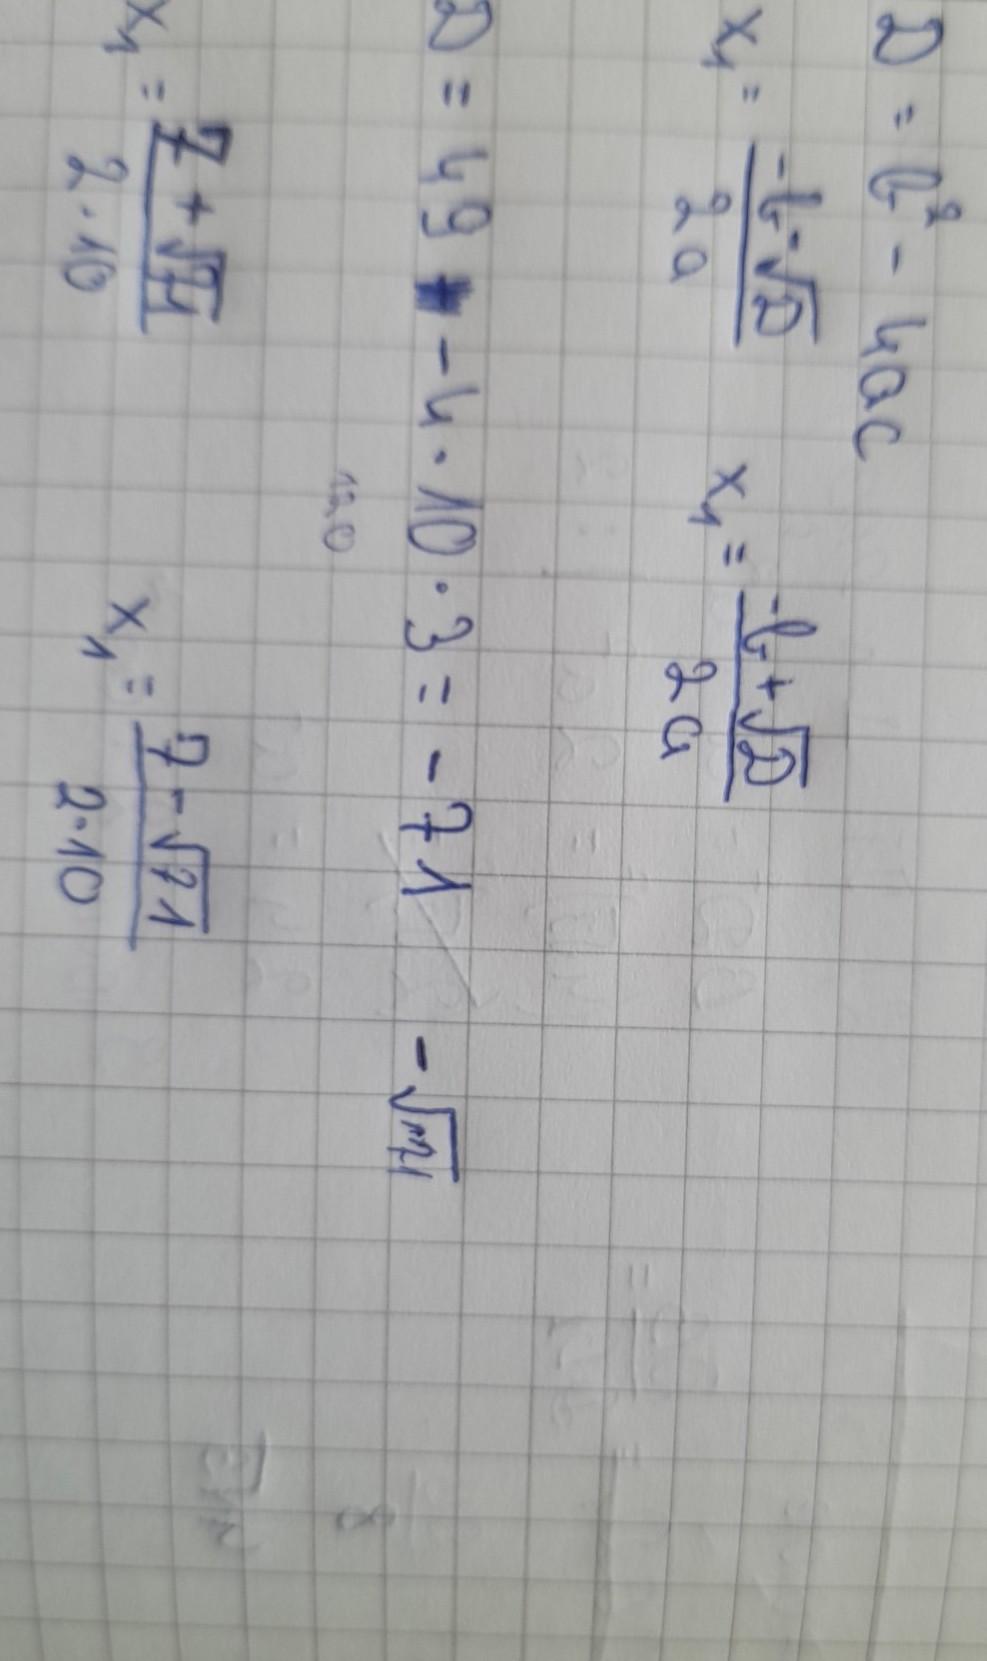 D = b² - 4ac
x₁ = (-b-√D)/(2a) x₁ = (-b+√D)/(2a)
D = 49 - 4·10·3 = -71 -√71
120
x₁ = (7+√71)/(2·10) x₁ = (7-√71)/(2·10)